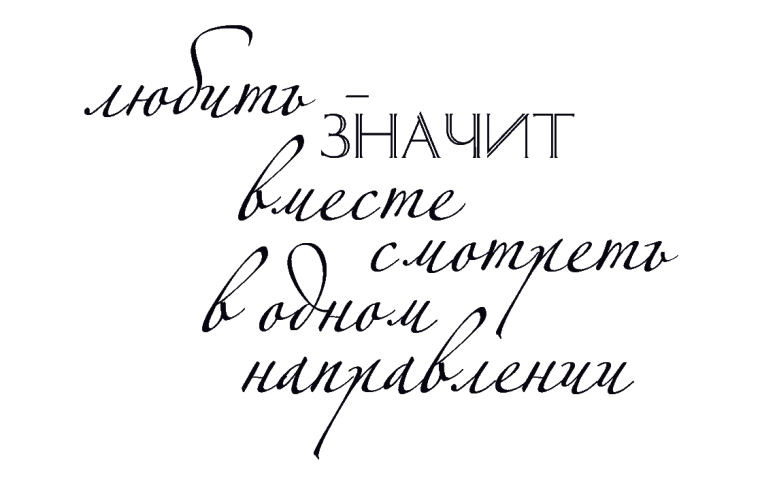 любить –
ЗНАЧИТ
вместе
смотреть
в одном
направлении